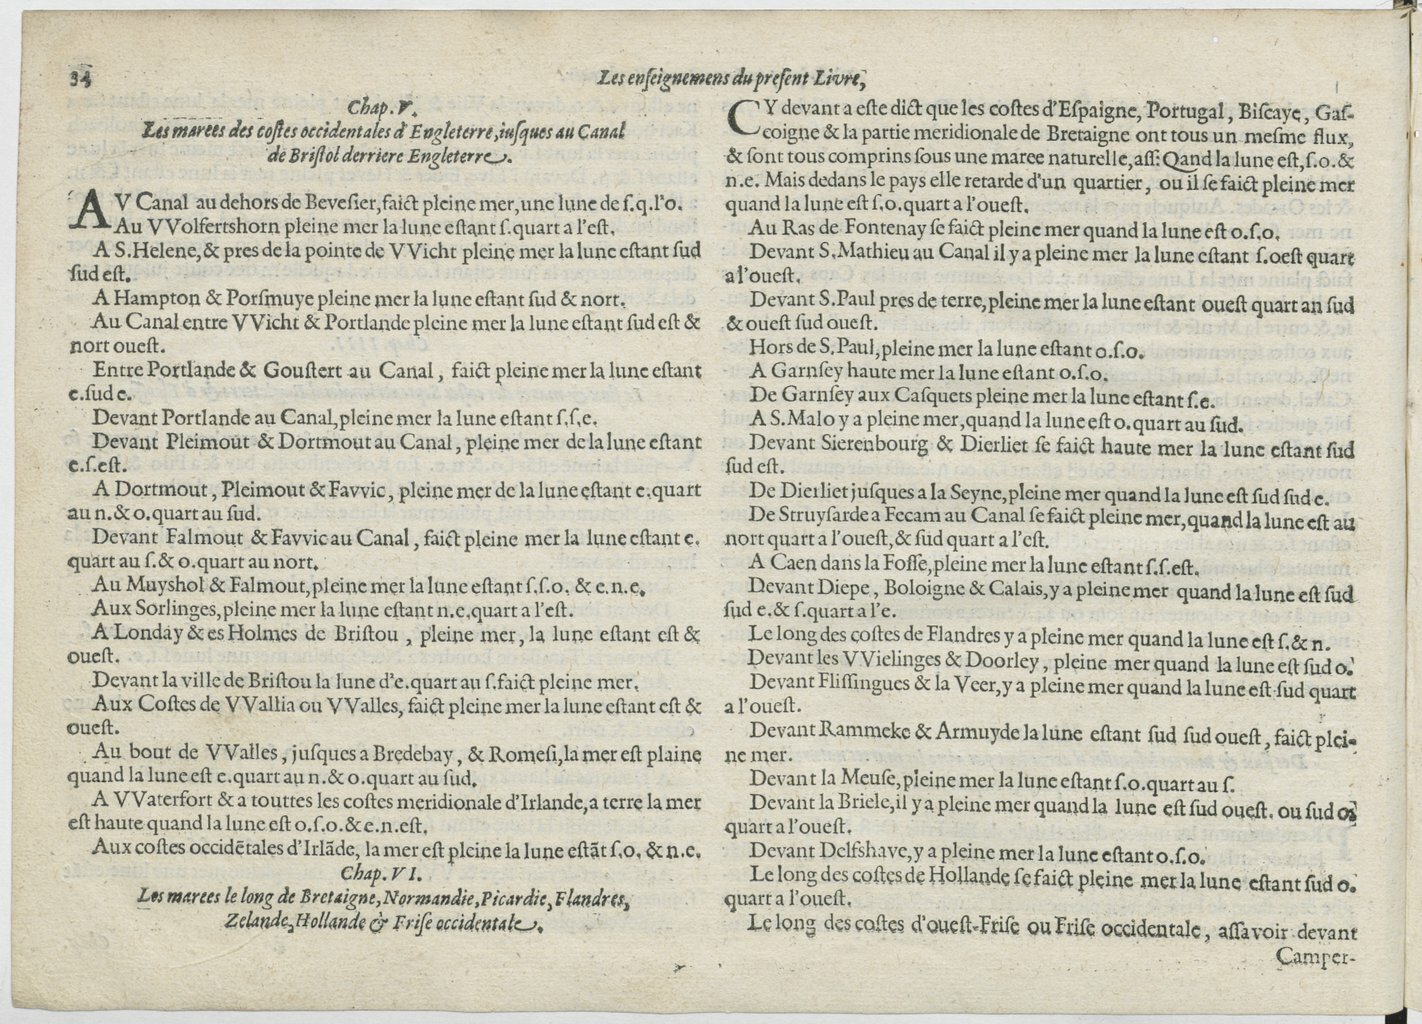 34
Les enseignemens du present Livre,
Chap. V.
Les marees des costes occidentales d'Engleterre, iusques au Canal
de Bristol derriere Engleterre.
AV Canal au dehors de Bevesier, faict pleine mer, une lune de s.q.l'o.
Au VVolfertshorn pleine mer la lune estant s.quart a l'est.
A S.Helene, & pres de la pointe de VVicht pleine mer la lune estant sud
sud est.
A Hampton & Porsmuye pleine mer la lune estant sud & nort.
Au Canal entre VVicht & Portlande pleine mer la lune estant sud est &
nort ouest.
Entre Portlande & Goustert au Canal, faict pleine mer la lune estant
e.sud e.
Devant Portlande au Canal, pleine mer la lune estant s,s,e.
Devant Pleimout & Dortmout au Canal, pleine mer de la lune estant
e.s.est.
A Dortmout, Pleimout & Favvic, pleine mer de la lune estant e.quart
au n.& o.quart au sud.
Devant Falmout & Favvic au Canal, faict pleine mer la lune estant e.
quart au s.& o.quart au nort.
Au Muyshol & Falmout, pleine mer la lune estant s.s.o. & e.n.e.
Aux Sorlinges, pleine mer la lune estant n.e.quart a l'est.
A Londay & es Holmes de Bristou, pleine mer, la lune estant est &
ouest.
Devant la ville de Bristou la lune d'e.quart au s.faict pleine mer.
Aux Costes de VVallia ou VValles, faict pleine mer la lune estant est &
ouest.
Au bout de VValles, jusques a Bredebay, & Romesi, la mer est plaine
quand la lune est e.quart au n.& o.quart au sud.
A VVaterfort & a touttes les costes meridionale d'Irlande, a terre la mer
est haute quand la lune est o.s.o.& e.n.est.
Aux costes occidẽtales d'Irlãde, la mer est pleine la lune estãt s.o. & n.e.
Chap. VI.
Les marees le long de Bretaigne, Normandie, Picardie, Flandres,
Zelande, Hollande & Frise occidentale.
CY devant a este dict que les costes d'Espaigne, Portugal, Biscaye, Gas-
coigne & la partie meridionale de Bretaigne ont tous un mesme flux,
& sont tous comprins sous une maree naturelle, ass: Qand la lune est, s.o.&
n.e. Mais dedans le pays elle retarde d'un quartier, ou il se faict pleine mer
quand la lune est s.o.quart a l'ouest.
Au Ras de Fontenay se faict pleine mer quand la lune est o.s.o.
Devant S.Mathieu au Canal il y a pleine mer la lune estant s.oest quart
a l'ouest.
Devant S.Paul pres de terre, pleine mer la lune estant ouest quart an sud
& ouest sud ouest.
Hors de S.Paul, pleine mer la lune estant o.s.o.
A Garnsey haute mer la lune estant o.s.o.
De Garnsey aux Casquets pleine met la lune estant s.e.
A S.Malo y a pleine mer, quand la lune est o.quart au sud.
Devant Sierenbourg & Dierliet se faict haute mer la lune estant sud
sud est.
De Dierliet jusques a la Seyne, pleine mer quand la lune est sud sud e.
De Struysarde a Fecam au Canal se faict pleine mer, quand la lune est au
nort quart a l'ouest, & sud quart a l'est.
A Caen dans la Fosse, pleine mer la lune estant s.s.est.
Devant Diepe, Boloigne & Calais, y a pleine mer quand la lune est sud
sud e.& s.quart a l'e.
Le long des costes de Flandres y a pleine mer quand la lune est s.& n.
Devant les VVielinges & Doorley, pleine mer quand la lune est sud o.
Devant Flissingues & la Veer, y a pleine mer quand la lune est sud quart
a l'ouest.
Devant Rammeke & Armuyde la lune estant sud sud ouest, faict plei-
ne mer.
Devant la Meuse, pleine mer la lune estant s.o.quart au s.
Devant la Briele, il y a pleine mer quand la lune est sud ouest. ou sud o.
quart a l'ouest.
Devant Delfshave, y a pleine mer la lune estant o.s.o.
Le long des costes de Hollande se faict pleine mer la lune estant sud o.
quart a l'ouest.
Le long des costes d'ouest-Frise ou Frise occidentale, assavoir devant
Camper-